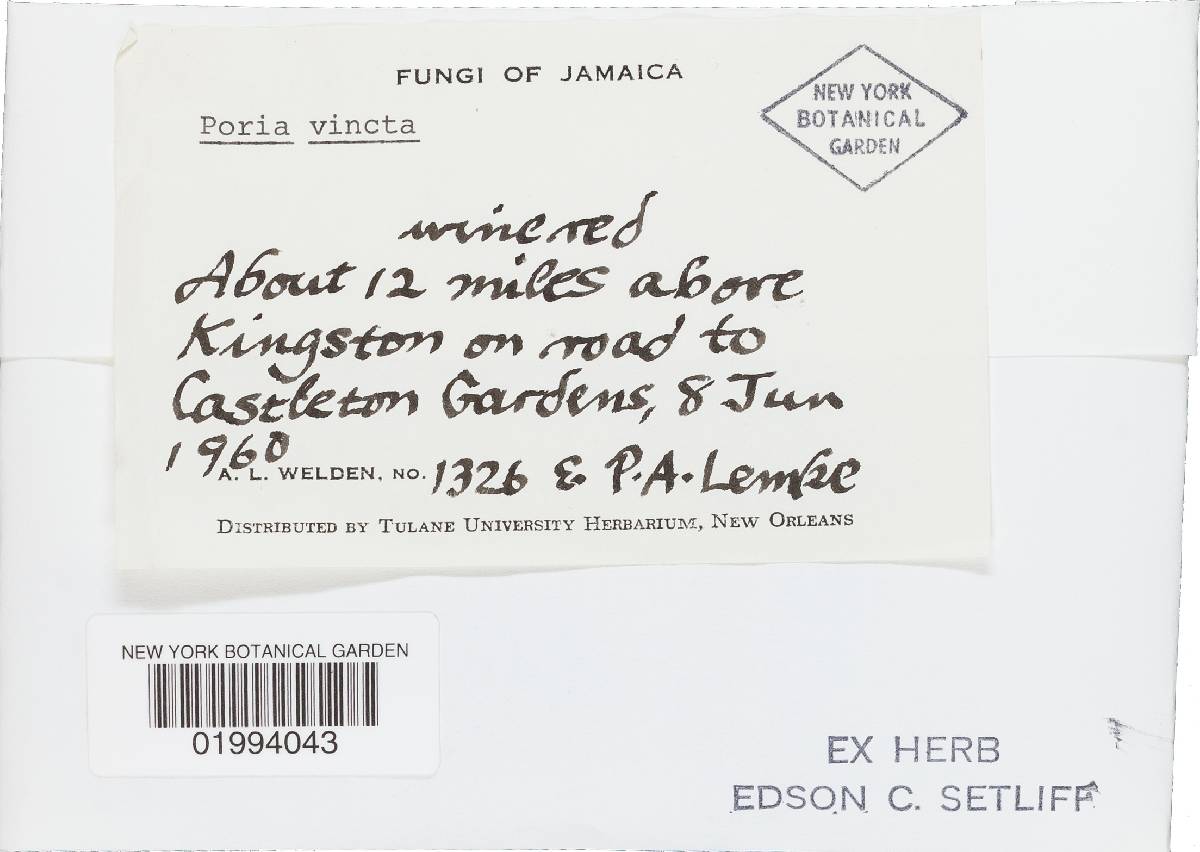 FUNGI OF JAMAICA
Poria vincta
NEW YORK
BOTANICAL
GARDEN
wine red
About 12 miles above
Kingston on road to
Castleton Gardens, 8 Jun
1960
A. L. WELDEN, NO. 1326 & P.A. Lemke
DISTRIBUTED BY TULANE UNIVERSITY HERBARIUM, NEW ORLEANS
NEW YORK BOTANICAL GARDEN
01994043
EX HERB
EDSON C. SETLIFF